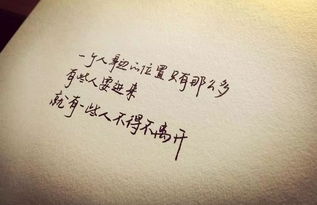 一个人身边的位置只有那么多
有些人要进来
就有一些人不得不离开